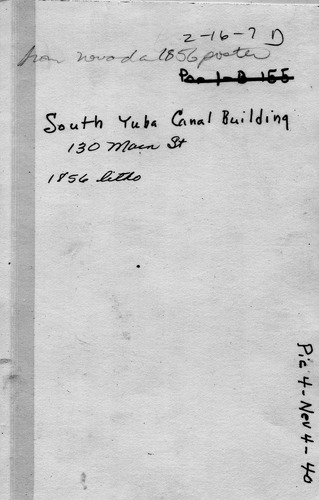 2-16-7 D
from nevada 1856 poster
Pic 1-B 155
South Yuba Canal Building
130 Main St
1856 litho
Pic 4-Nev 4-40